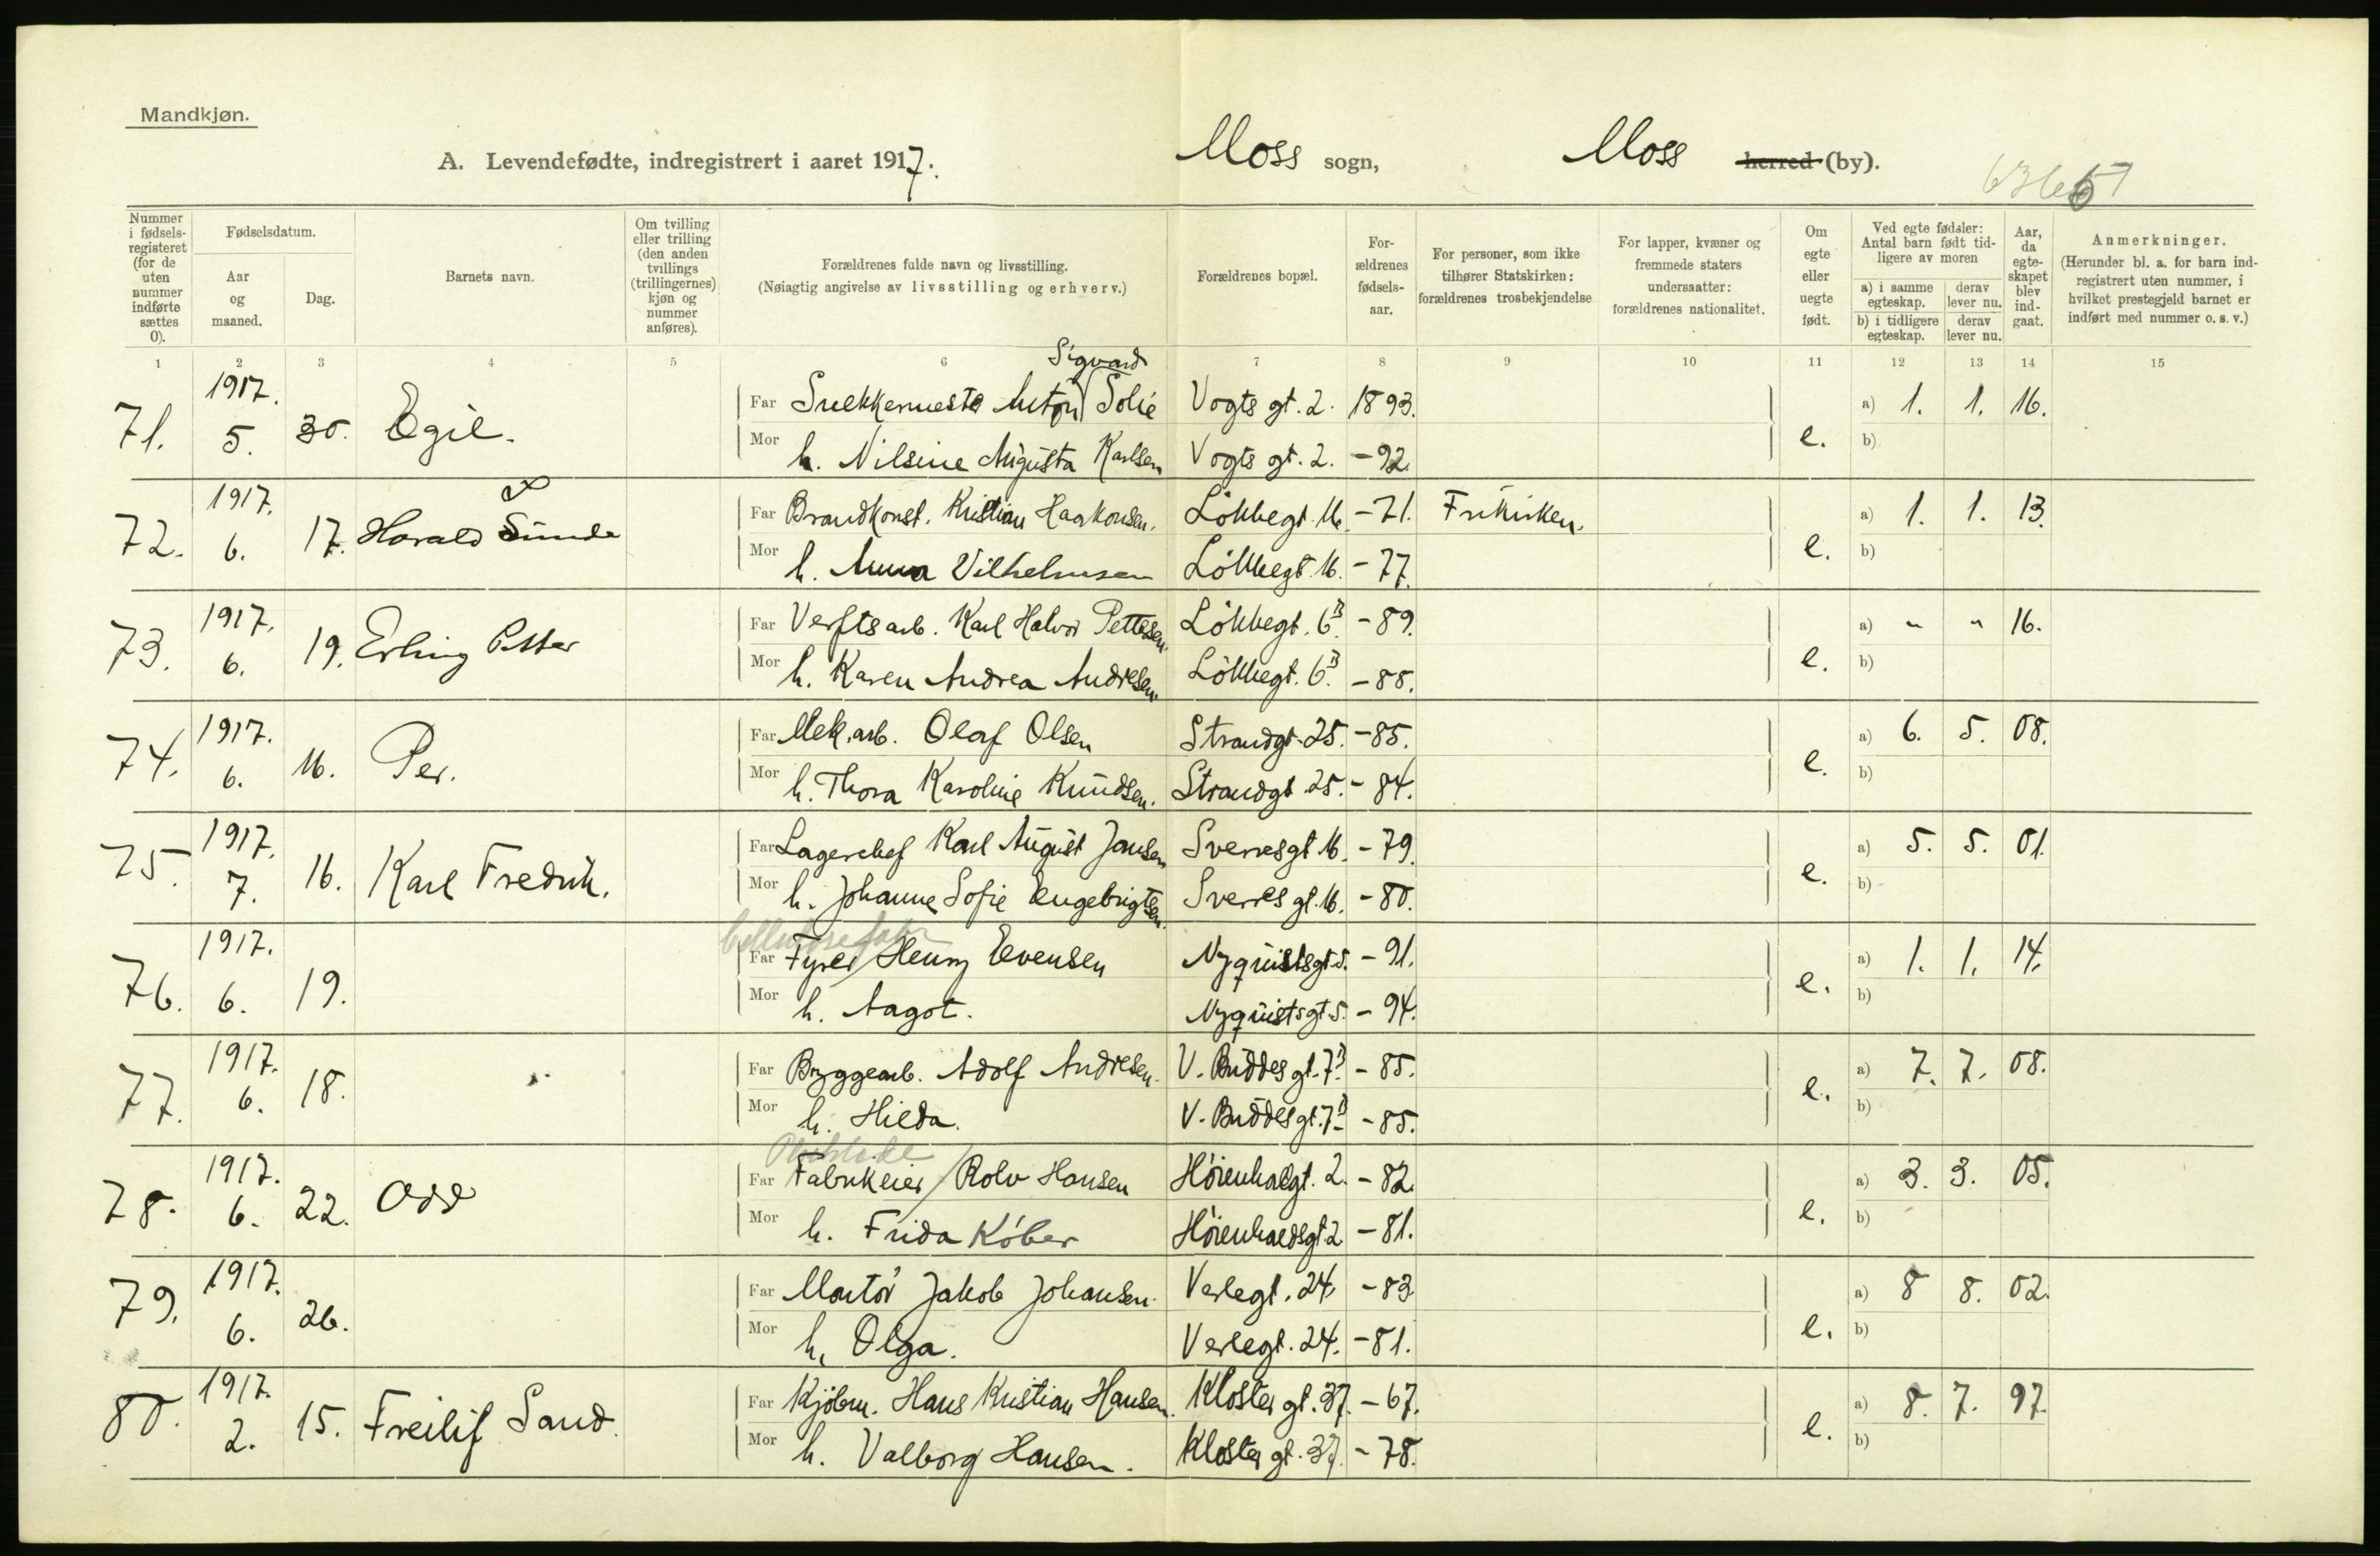 Mandkjøn.
A. Levendefødte, indregistrert i aaret 1917. Moss sogn, Moss herred (by).
Nummer i fødsels-registeret (for de uten nummer indførte sættes 0).
Fødselsdatum.
Aar og maaned.
Dag.
Barnets navn.
Om tvilling eller trilling (den anden tvillings (trillingernes) kjøn og nummer anføres).
Forældrenes fulde navn og livsstilling.
(Nøiagtig angivelse av livsstilling og erhverv.)
Forældrenes bopæl.
For-ældrenes fødsels-aar.
For personer, som ikke tilhører Statskirken: forældrenes trosbekjendelse
For lapper, kvæner og fremmede staters undersaatter: forældrenes nationalitet.
Om egte eller uegte født.
Ved egte fødsler: Antal barn født tid-ligere av moren
a) i samme egteskap.
derav lever nu.
b) i tidligere egteskap.
derav lever nu.
Aar, da egte-skapet blev ind-gaat.
Anmerkninger.
(Herunder bl. a. for barn ind-registrert uten nummer, i hvilket prestegjeld barnet er indført med nummer o. s. v.)
1 2 3 4 5 6 7 8 9 10 11 12 13 14 15
Sigvard
71. 1917. 5. 30. Egil. Far Snekkermester Anton Solie Vogts gt. 2. 1893. e. a) 1. 1. 16.
Mor h. Nilsine Augusta Karlsen Vogts gt. 2. -92. b)
72. 1917. 6. 17. Harald Sunde Far Brandkonst. Kristian Haakonsen. Lökkegt. 16. -71. Frikirken. e. a) 1. 1. 13.
Mor h. Anna Vilhelmsen Lökkegt. 16. -77. b)
73. 1917. 6. 19. Erling Petter Far Verftsarb. Karl Halvor Pettersen Lökkegt. 6B. -89. e. a) " " 16.
Mor h. Karen Andrea Andresen. Lökkegt. 6B. -88. b)
74. 1917. 6. 16. Per. Far Mek. arb. Olaf Olsen Strandgt. 25. -85. e. a) 6. 5. 08.
Mor h. Thora Karoline Knudsen. Strandgt. 25. -84. b)
75. 1917. 7. 16. Karl Fredrik. Far Lagerchef Karl August Jansen Sverresgt. 16. -79. e. a) 5. 5. 01.
Mor h. Johanne Sofie Engebrigtsen. Sverres gt. 16. -80. b)
Cellulosefabr
76. 1917. 6. 19. Far Fyrer/Henry Evensen Nyquistsgt. 5. -91. e. a) 1. 1. 14.
Mor h. Aagot. Nyquistsgt. 5. -94. b)
77. 1917. 6. 18. Far Bryggearb. Adolf Andresen. V. Buddes gt. 7B. -85. e. a) 7. 7. 08.
Mor h. Hilda. V. Buddes gt. 7B -85. b)
78. 1917. 6. 22. Odd Far Fabrikeier/Rolv Hansen Höienhalgt. 2. -82. e. a) 3. 3. 05.
Mor h. Frida Köber Höienhaldsgt 2 -81. b)
79. 1917. 6. 26. Far Montör Jakob Johansen. Verlegt. 24. -83 e. a) 8 8. 02.
Mor h. Olga. Verlegt. 24. -81. b)
80. 1917. 2. 15. Freilif Sand. Far Kjöbm. Hans Kristian Hansen. Kloster gt. 37. -67. e. a) 8. 7. 97.
Mor h. Valborg Hansen. Kloster gt. 37. -78. b)